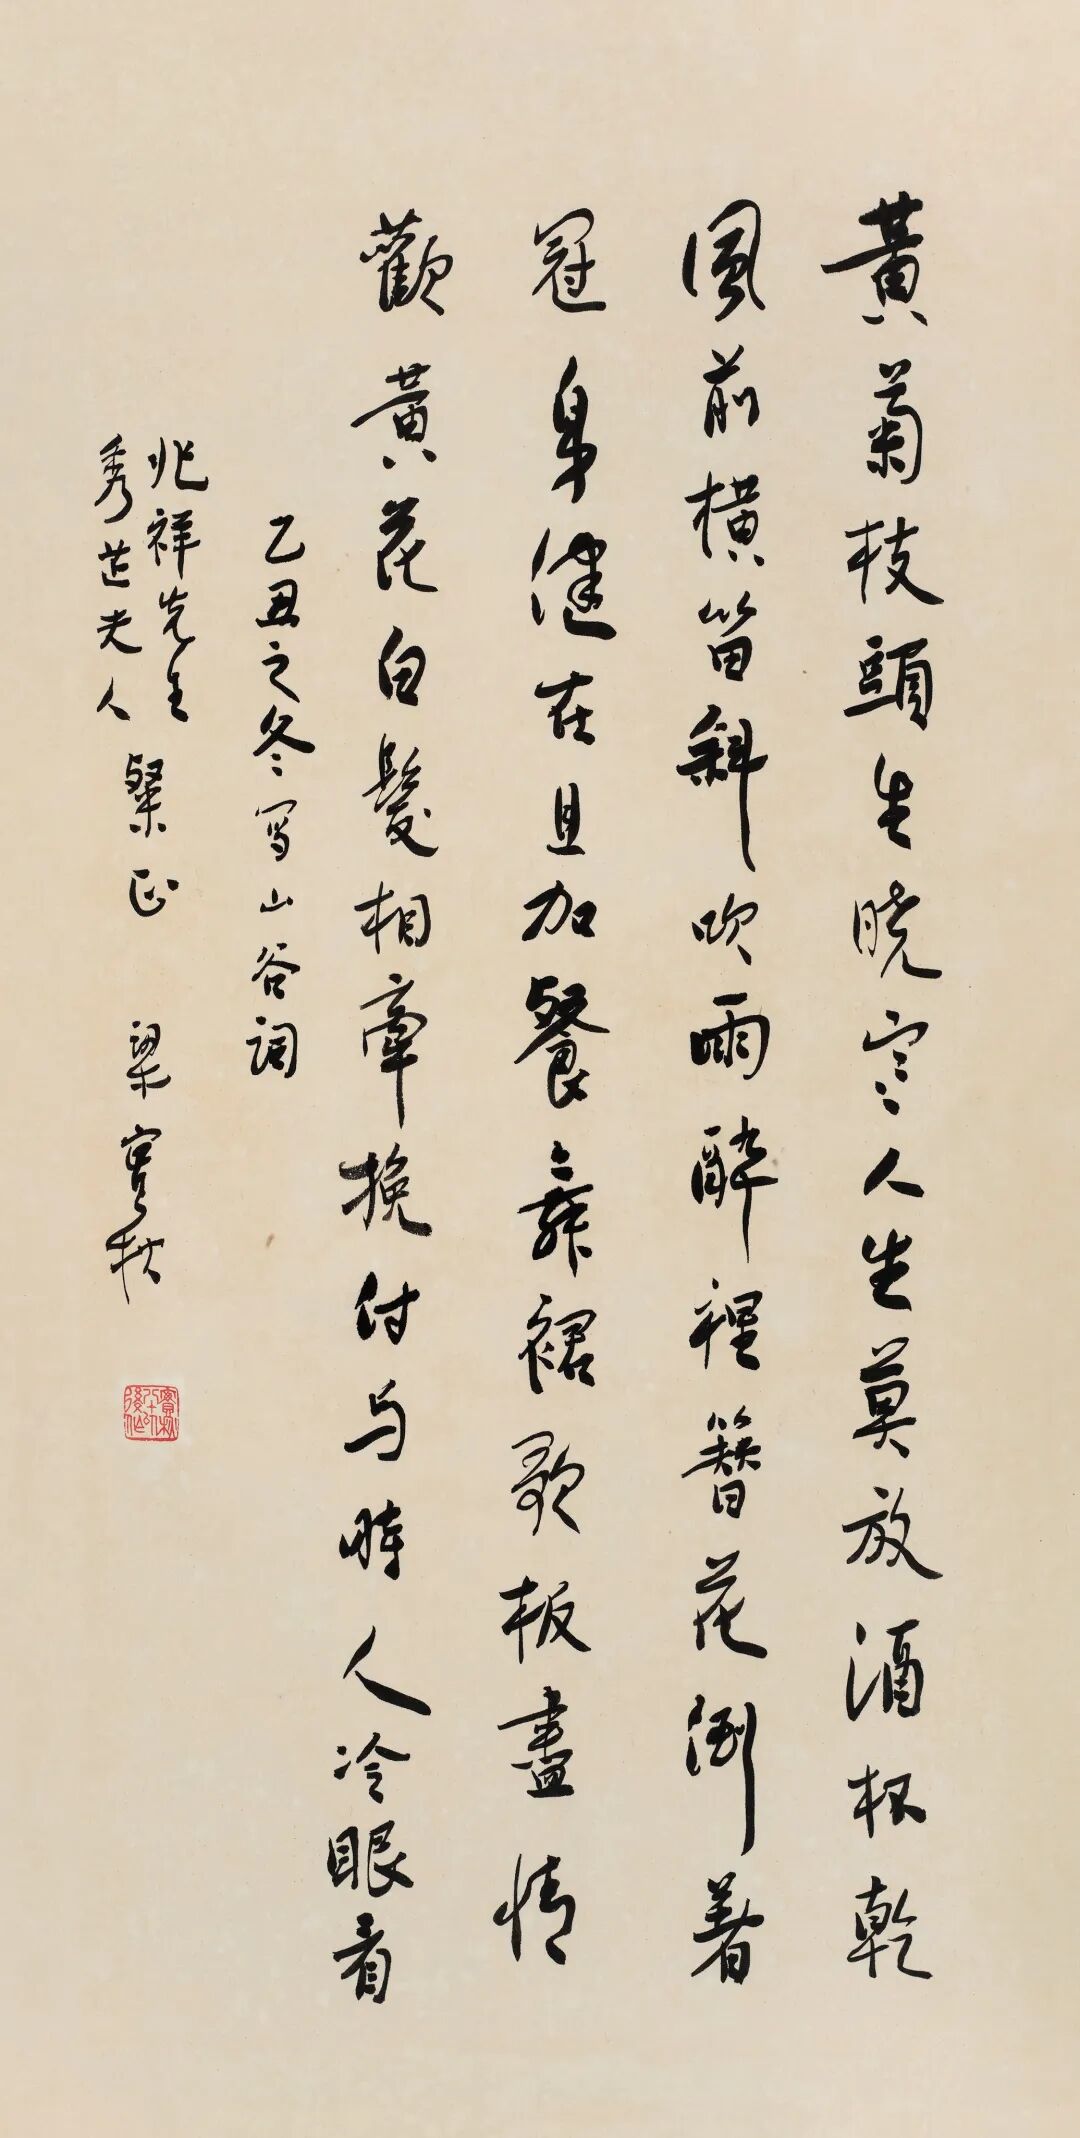 黃菊枝頭生曉寒人生莫放酒杯乾
風前橫笛斜吹雨醉裡簪花倒著
冠身健在且加餐舞裙歌板盡情
歡黃花白髮相牽挽付与時人冷眼看
乙丑之冬寫山谷詞
兆祥先生
秀芷夫人
粲正 梁實秋
實秋八十後作